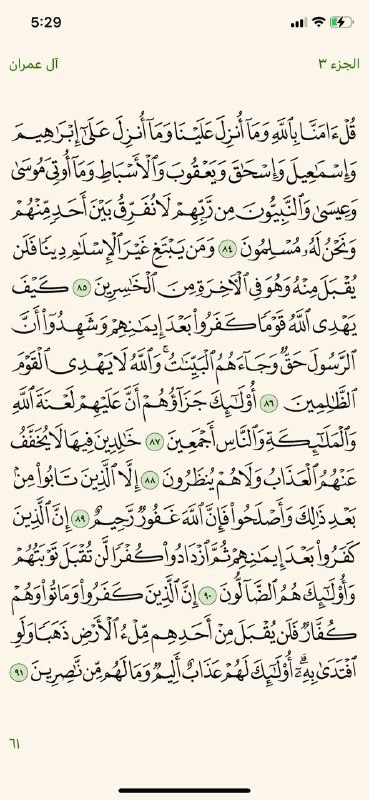 5:29
الجزء ٣
آل عمران
قُلْ ءَامَنَّا بِٱللَّهِ وَمَآ أُنزِلَ عَلَيْنَا وَمَآ أُنزِلَ عَلَىٰٓ إِبْرَٰهِيمَ
وَإِسْمَٰعِيلَ وَإِسْحَٰقَ وَيَعْقُوبَ وَٱلْأَسْبَاطِ وَمَآ أُوتِىَ مُوسَىٰ
وَعِيسَىٰ وَٱلنَّبِيُّونَ مِن رَّبِّهِمْ لَا نُفَرِّقُ بَيْنَ أَحَدٍ مِّنْهُمْ
وَنَحْنُ لَهُۥ مُسْلِمُونَ ٨٤ وَمَن يَبْتَغِ غَيْرَ ٱلْإِسْلَٰمِ دِينًا فَلَن
يُقْبَلَ مِنْهُ وَهُوَ فِى ٱلْأَخِرَةِ مِنَ ٱلْخَٰسِرِينَ ٨٥ كَيْفَ
يَهْدِى ٱللَّهُ قَوْمًا كَفَرُوا۟ بَعْدَ إِيمَٰنِهِمْ وَشَهِدُوٓا۟ أَنَّ
ٱلرَّسُولَ حَقٌّ وَجَآءَهُمُ ٱلْبَيِّنَٰتُ ۚ وَٱللَّهُ لَا يَهْدِى ٱلْقَوْمَ
ٱلظَّٰلِمِينَ ٨٦ أُو۟لَٰٓئِكَ جَزَآؤُهُمْ أَنَّ عَلَيْهِمْ لَعْنَةَ ٱللَّهِ
وَٱلْمَلَٰٓئِكَةِ وَٱلنَّاسِ أَجْمَعِينَ ٨٧ خَٰلِدِينَ فِيهَا لَا يُخَفَّفُ
عَنْهُمُ ٱلْعَذَابُ وَلَا هُمْ يُنظَرُونَ ٨٨ إِلَّا ٱلَّذِينَ تَابُوا۟ مِنۢ
بَعْدِ ذَٰلِكَ وَأَصْلَحُوا۟ فَإِنَّ ٱللَّهَ غَفُورٌ رَّحِيمٌ ٨٩ إِنَّ ٱلَّذِينَ
كَفَرُوا۟ بَعْدَ إِيمَٰنِهِمْ ثُمَّ ٱزْدَادُوا۟ كُفْرًا لَّن تُقْبَلَ تَوْبَتُهُمْ
وَأُو۟لَٰٓئِكَ هُمُ ٱلضَّآلُّونَ ٩٠ إِنَّ ٱلَّذِينَ كَفَرُوا۟ وَمَاتُوا۟ وَهُمْ
كُفَّارٌ فَلَن يُقْبَلَ مِنْ أَحَدِهِم مِّلْءُ ٱلْأَرْضِ ذَهَبًا وَلَوِ
ٱفْتَدَىٰ بِهِۦٓ ۗ أُو۟لَٰٓئِكَ لَهُمْ عَذَابٌ أَلِيمٌ وَمَا لَهُم مِّن نَّٰصِرِينَ ٩١
٦١